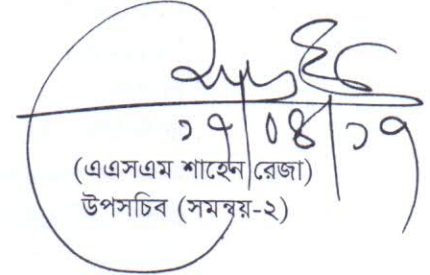 ১৭/০৪/১৭
(এএসএম শাহেন রেজা)
উপসচিব (সমন্বয়-২)